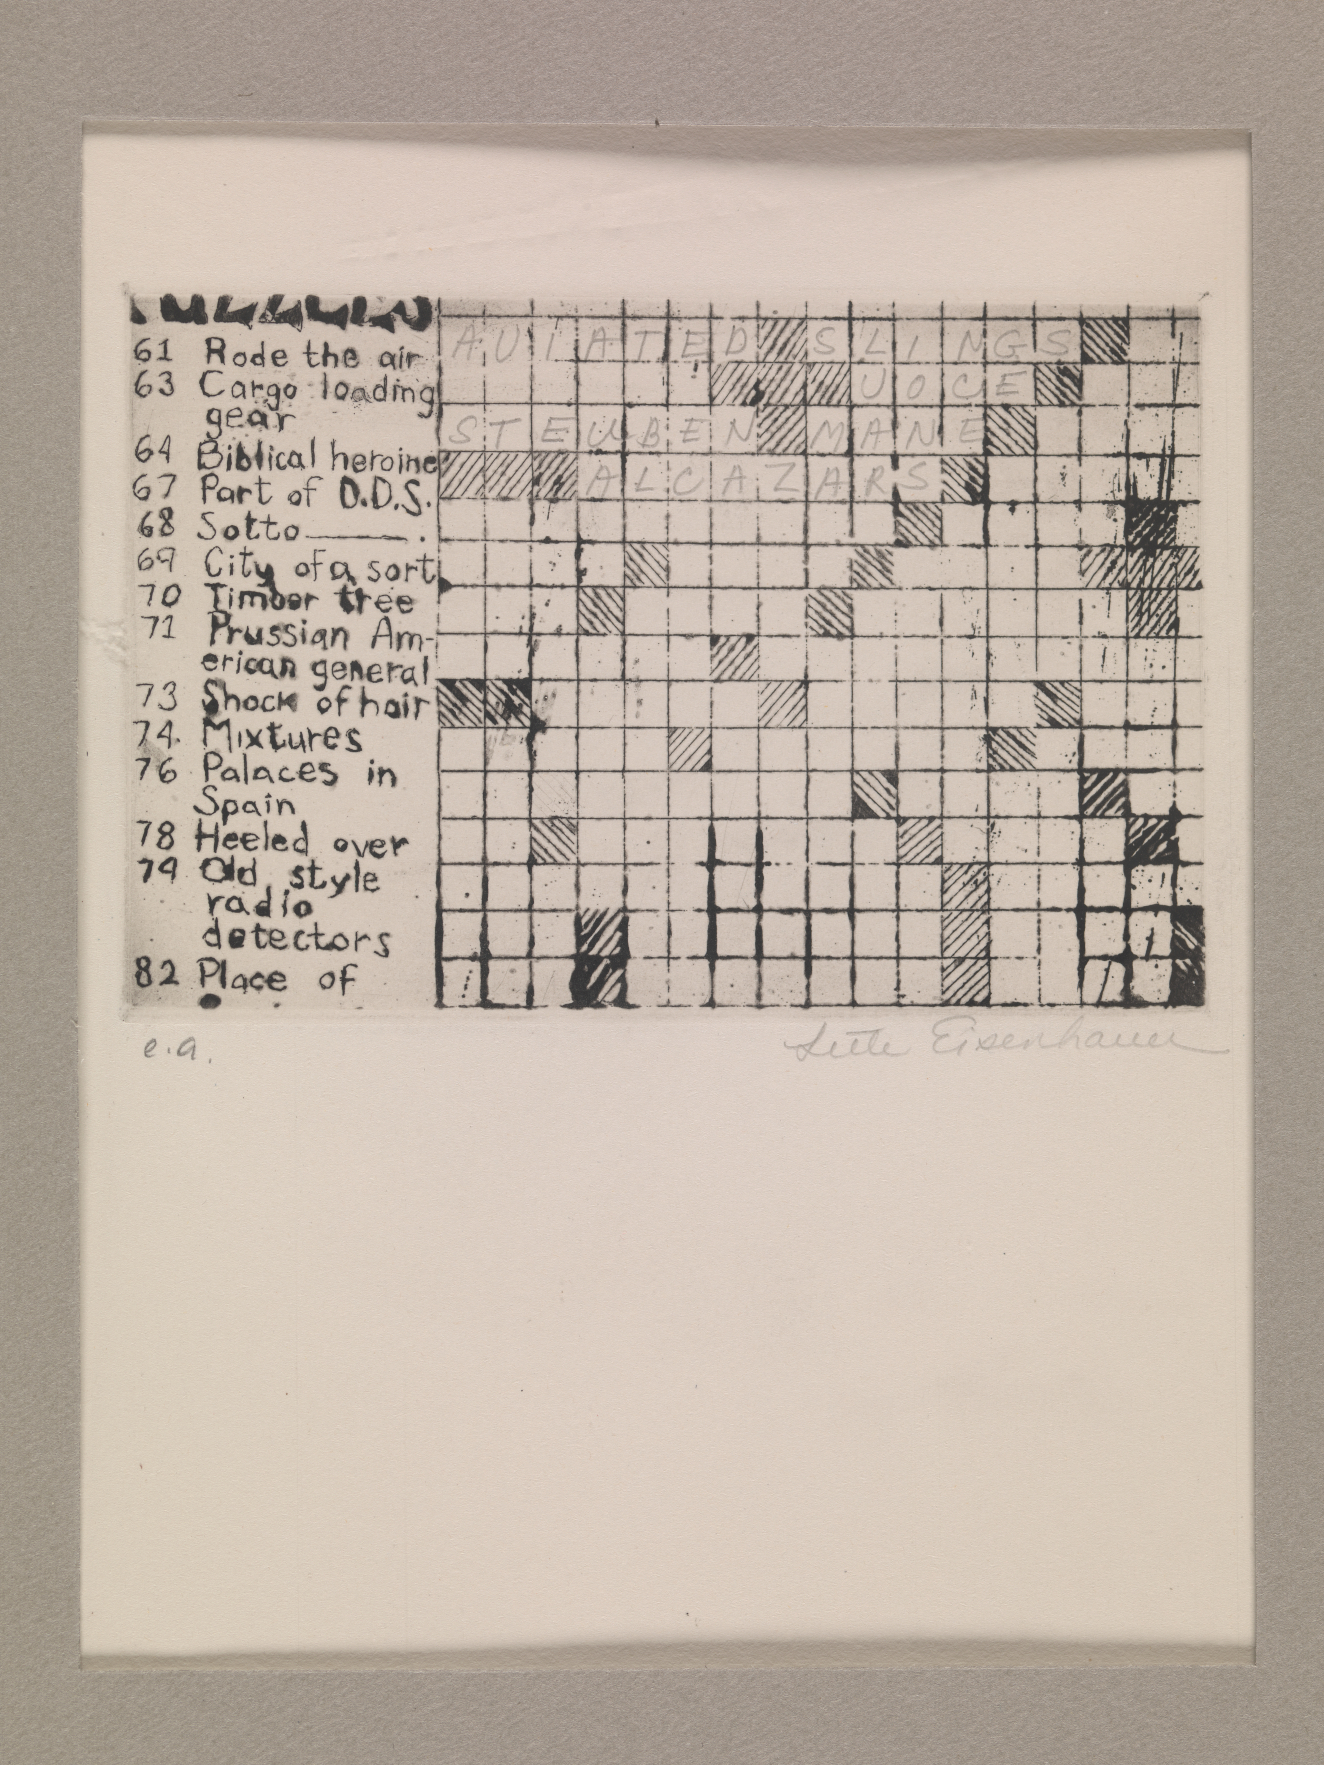 61 Rode the air
63 Cargo loading
gear
64 Biblical heroine
67 Part of D.D.S.
68 Sotto______.
69 City of a sort
70 Timber tree
71 Prussian Am-
erican general
73 Shock of hair
74. Mixtures
76 Palaces in
Spain
78 Heeled over
79 Old style
radio
detectors
82 Place of
AVIATED SLINGS
VOCE
STEUBEN MANE
ALCAZARS
e.a.
Eisenhauer